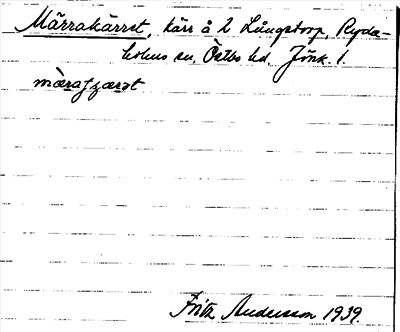 Märrakärret, kärr å 2 Långstorp, Ryda-
holms sn, Östbo hd, Jönk. l.
Fritz Andersson 1939.